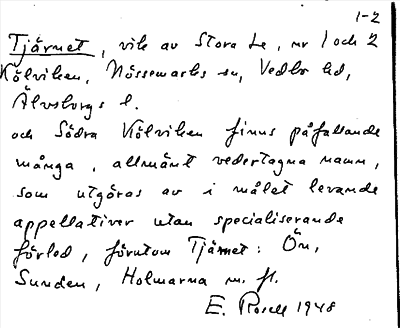 1-2
Tjärnet, vik av Stora Le, nr 1 och 2
Kölviken, Nössemarks sn, Vedbo hd,
Älvsborgs l.
och Södra Kölviken finns påfallande
många, allmänt vedertagna namn,
som utgöras av i målet levande
appellativer utan specialiserande
förled, förutom Tjärnet: Ön,
Sunden, Holmarna m. fl.
E. Rosell 1948